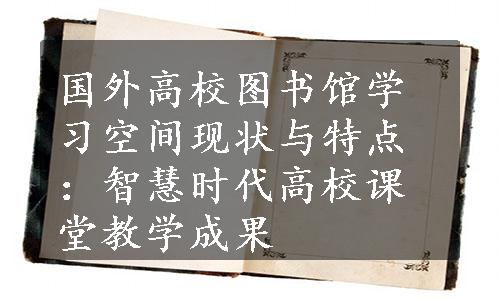 国外高校图书馆学
习空间现状与特点
：智慧时代高校课
堂教学成果